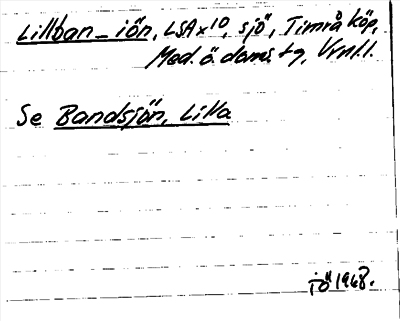 Lillban_iön, LSA x 10, sjö, Timrå köp,
Med. ö. doms. tg, Vrnl.l.
Se Bandsjön, Lilla
IÖ 1968.